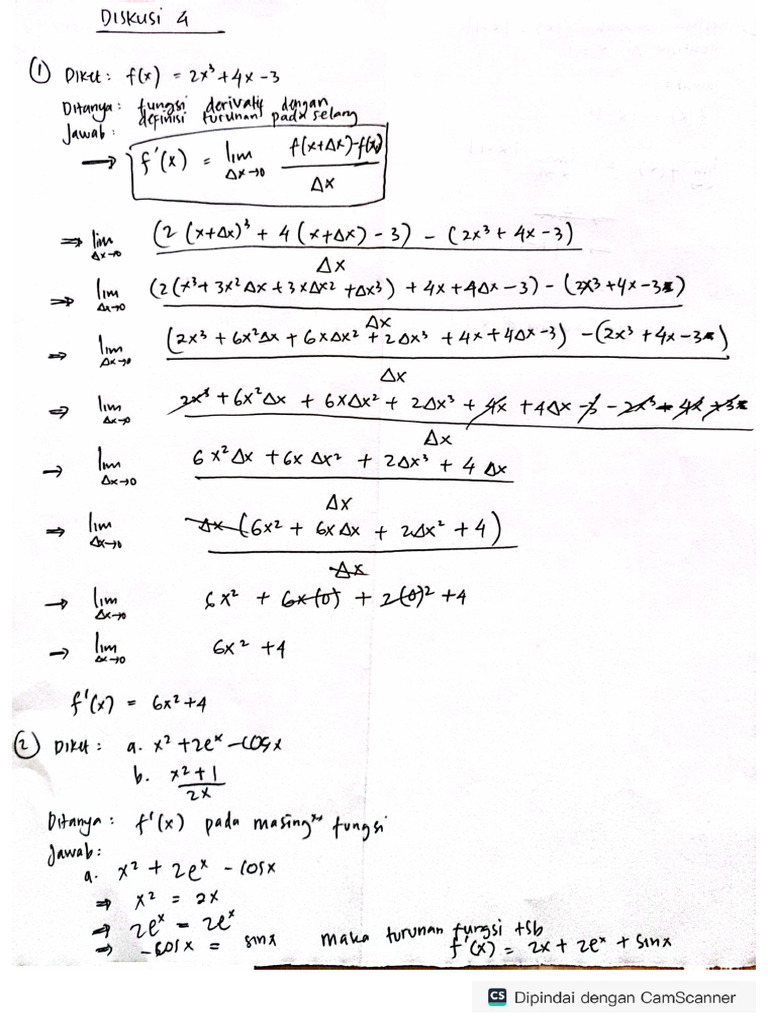 DISKUSI 4
① DIKET: f(x) = 2x³ + 4x - 3
Ditanya: fungsi derivatif dengan
definisi turunan pada selang
Jawab:
→ f'(x) = lim Δx→0 (f(x+Δx) - f(x)) / Δx
⇒ lim Δx→0 ((2(x+Δx)³ + 4(x+Δx) - 3) - (2x³ + 4x - 3)) / Δx
⇒ lim Δx→0 ((2(x³ + 3x²Δx + 3xΔx² + Δx³) + 4x + 4Δx - 3) - (2x³ + 4x - 3)) / Δx
⇒ lim Δx→0 ((2x³ + 6x²Δx + 6xΔx² + 2Δx³ + 4x + 4Δx - 3) - (2x³ + 4x - 3)) / Δx
⇒ lim Δx→0 (2x³ + 6x²Δx + 6xΔx² + 2Δx³ + 4x + 4Δx - 3 - 2x³ - 4x + 3) / Δx
→ lim Δx→0 (6x²Δx + 6xΔx² + 2Δx³ + 4Δx) / Δx
⇒ lim Δx→0 Δx(6x² + 6xΔx + 2Δx² + 4) / Δx
→ lim Δx→0 6x² + 6x(0) + 2(0)² + 4
→ lim Δx→0 6x² + 4
f'(x) = 6x² + 4
② DIKET: a. x² + 2eˣ - cosx
b. (x² + 1) / 2x
Ditanya: f'(x) pada masing² fungsi
Jawab:
a. x² + 2eˣ - cosx
⇒ x² = 2x
⇒ 2eˣ = 2eˣ
⇒ -cosx = sinx maka turunan fungsi tsb
f'(x) = 2x + 2eˣ + sinx
CS Dipindai dengan CamScanner